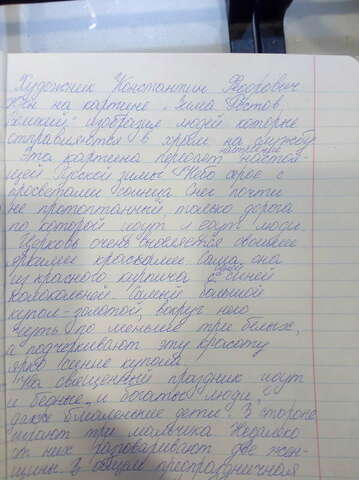 Художник Константин Федорович
Юон на картине „Зима Ростов
Великий" изобразил людей которые
отправляются в храм на службу
Эта картина передает настроение настоя-
щей Русской зимы. Небо серое с
просветами Снег почти
не протоптанный, только дорога
по которой идут и едут люди.
Церковь очень выделяется своими
яркими красными она
из красного кирпича с синей
колокольней. Самый большой
купол-золотой, вокруг него
чуть по меньше три белых,
и подчеркивают эту красоту
ярко синие купола.
На священный праздник идут
и бедные, и богатые люди,
даже маленькие дети. В стороне
играют три мальчика Недалеко
от них разговаривают две жен-
щины. В общем предпраздничная